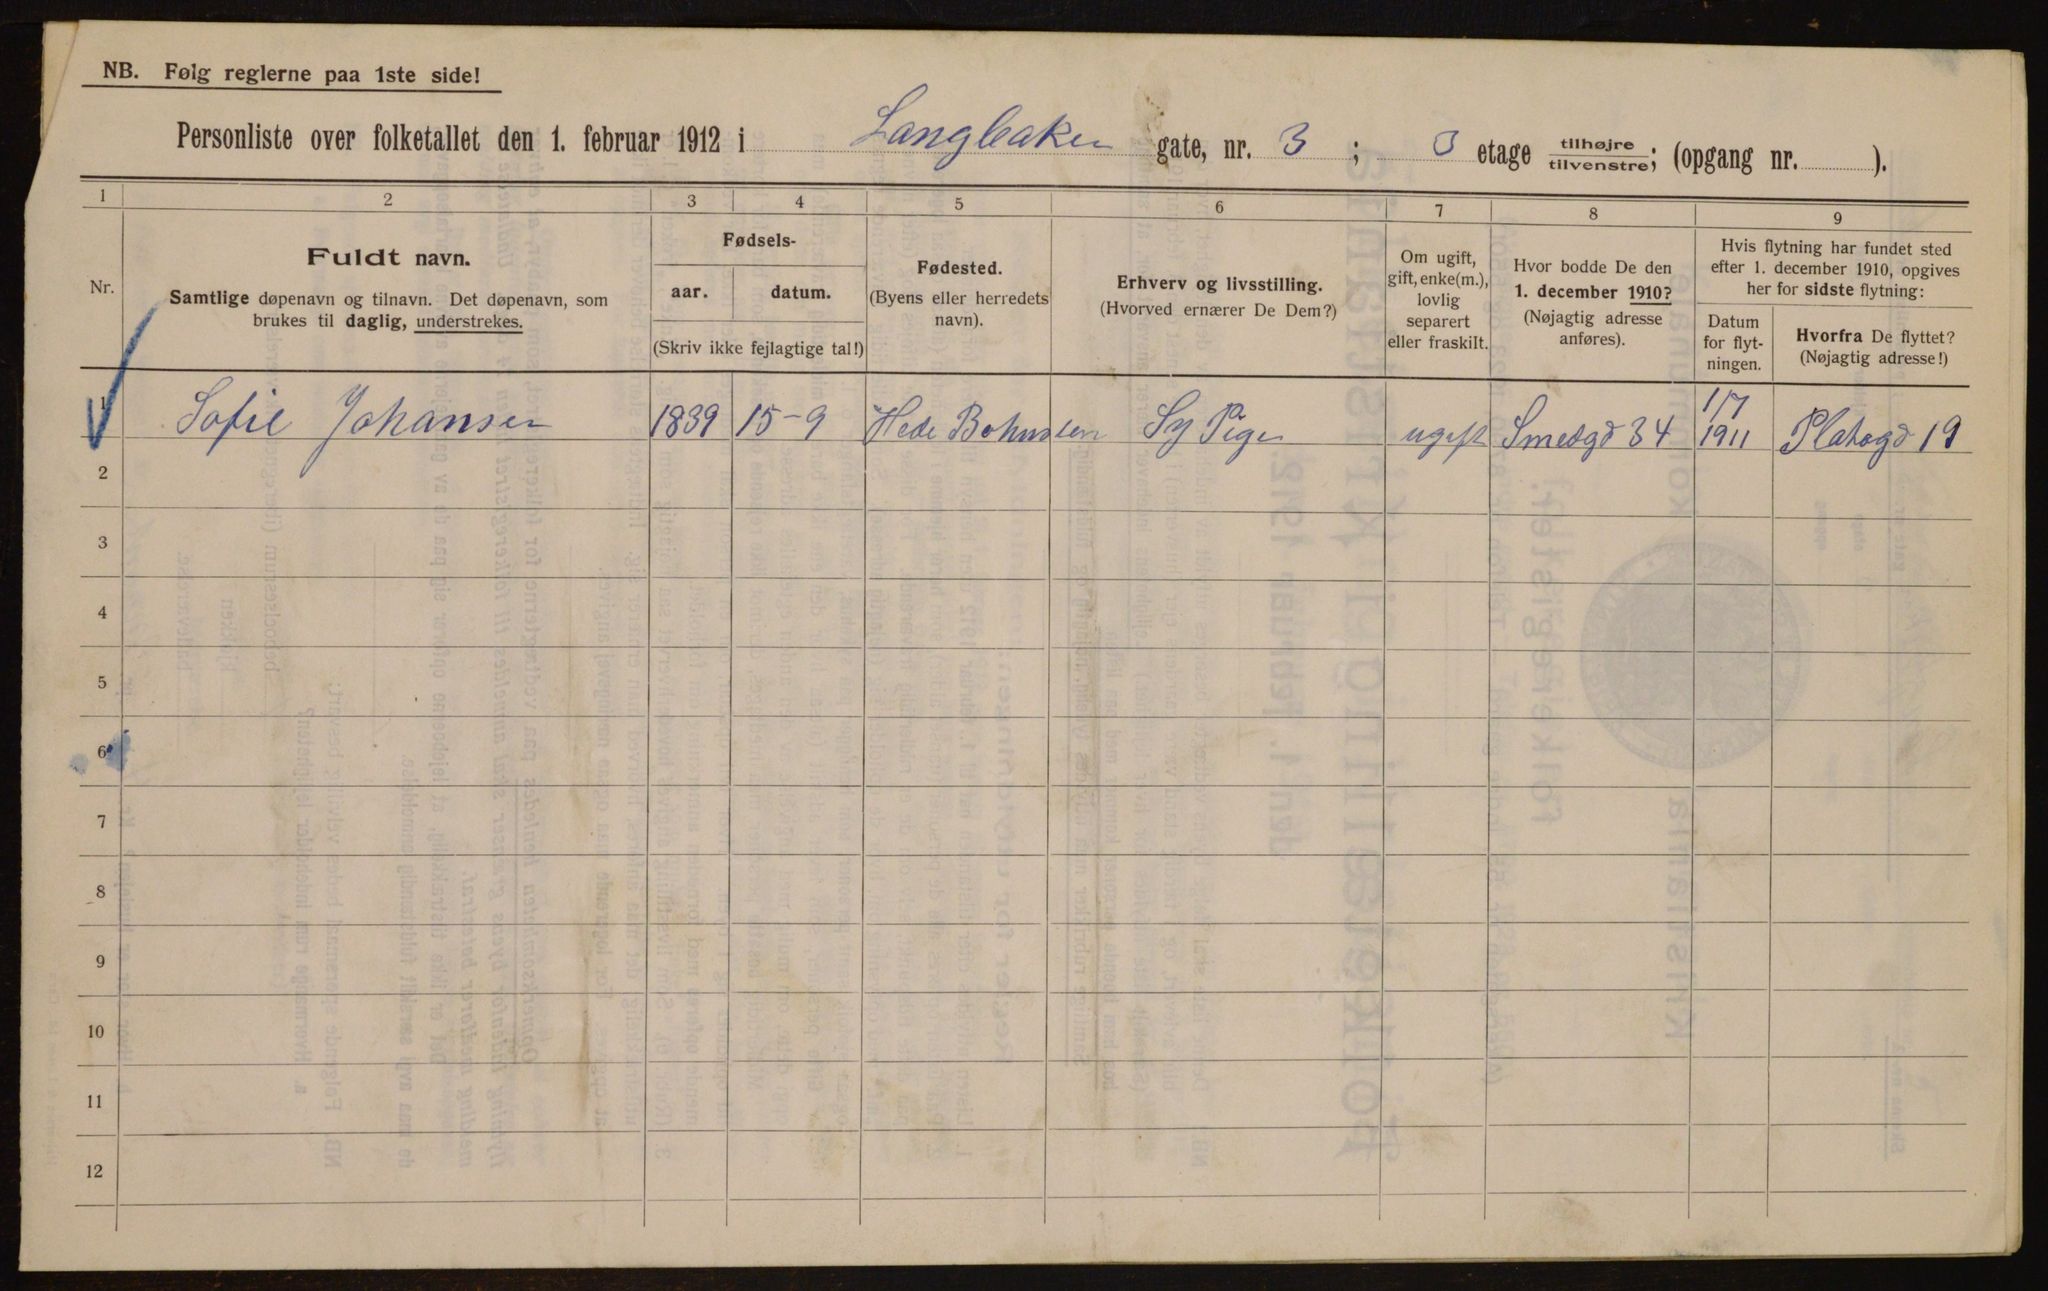 NB. Følg reglerne paa 1ste side!
Personliste over folketallet den 1. februar 1912 i Langleaken gate, nr. 3 ; 3 etage tilhøjre/tilvenstre; (opgang nr. ).
1 2 3 4 5 6 7 8 9
Nr.
Fuldt navn.
Samtlige døpenavn og tilnavn. Det døpenavn, som
brukes til daglig, understrekes.
Fødsels-
aar. datum.
(Skriv ikke fejlagtige tal!)
Fødested.
(Byens eller herredets
navn).
Erhverv og livsstilling.
(Hvorved ernærer De Dem?)
Om ugift,
gift, enke(m.),
lovlig
separert
eller fraskilt.
Hvor bodde De den
1. december 1910?
(Nøjagtig adresse
anføres).
Hvis flytning har fundet sted
efter 1. december 1910, opgives
her for sidste flytning:
Datum
for flyt-
ningen.
Hvorfra De flyttet?
(Nøjagtig adresse!)
1 Sofie Johansen 1839 15-9 Hede Bohuslen Sy Pige ugift Smedgd 34 1/7 1911 Platogd 19
2
3
4
5
6
7
8
9
10
11
12